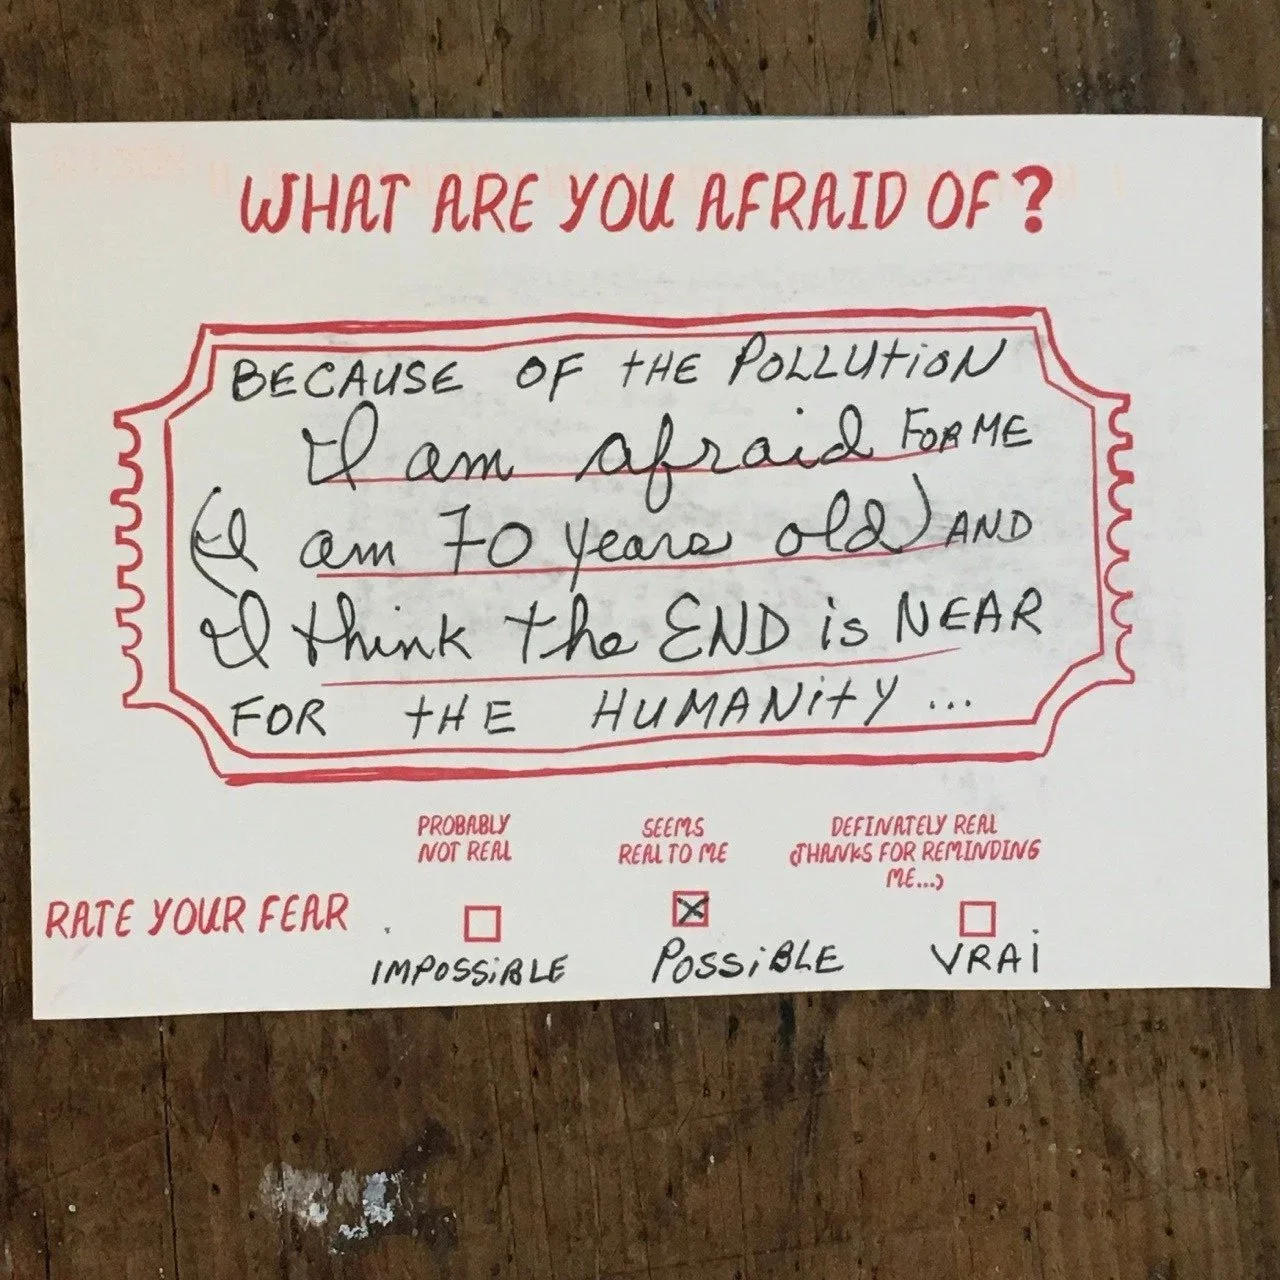 WHAT ARE YOU AFRAID OF?
BECAUSE OF tHE POLLUtiON
I am afraid FOR ME
(I am 70 years old) AND
I think the END is NEAR
FOR tHE HUMANitY ...
PROBABLY
NOT REAL
SEEMS
REAL TO ME
DEFINATELY REAL
(THANKS FOR REMINDING
ME...)
RATE YOUR FEAR
IMPOSSiBLE
POSSiBLE
VRAi